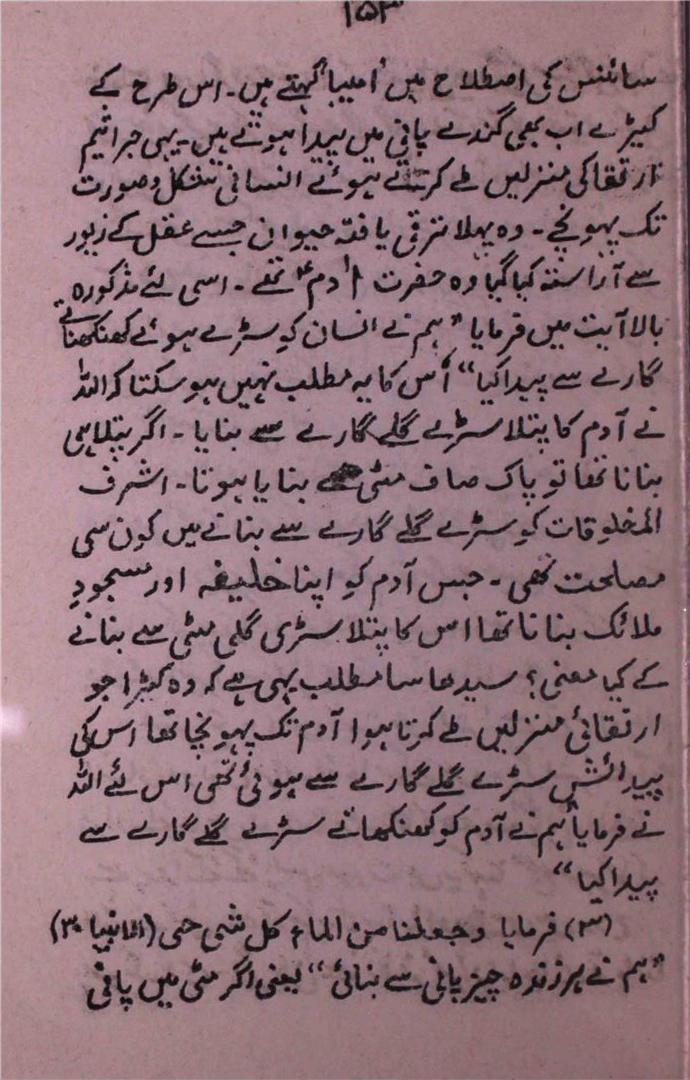 ۱۵۳
سائنس کی اصطلاح میں 'امیبا' کہتے ہیں۔ اس طرح کے
کیڑے اب بھی گندے پانی میں پیدا ہوتے ہیں۔ یہی جراثیم
ارتقا کی منزلیں طے کرتے ہوئے انسانی شکل و صورت
تک پہونچے۔ وہ پہلا ترقی یافتہ حیوان جسے عقل کے زیور
سے آراستہ کیا گیا وہ حضرت آدمؑ تھے۔ اسی لئے مذکورہ
بالا آیت میں فرمایا "ہم نے انسان کو سڑے ہوئے کھنکھناتے
گارے سے پیدا کیا" اُس کا یہ مطلب نہیں ہو سکتا کہ اللہ
نے آدم کا پتلا سڑے گلے گارے سے بنایا۔ اگر پتلا ہی
بنانا تھا تو پاک صاف مٹی سے بنایا ہوتا۔ اشرف
المخلوقات کو سڑے گلے گارے سے بنانے میں کون سی
مصلحت تھی۔ جس آدم کو اپنا خلیفہ اور مسجودِ
ملائک بنانا تھا اس کا پتلا سڑی گلی مٹی سے بنانے
کے کیا معنی؟ سیدھا سا مطلب یہی ہے کہ وہ کیڑا جو
ارتقائی منزلیں طے کرتا ہوا آدم تک پہونچا تھا اس کی
پیدائش سڑے گلے گارے سے ہوئی تھی اس لئے اللہ
نے فرمایا "ہم نے آدم کو کھنکھاتے سڑے گلے گارے سے
پیدا کیا"
(۳) فرمایا وجعلنا من الماء کل شی حی (الانبیا ۳۰)
"ہم نے ہر زندہ چیز پانی سے بنائی" یعنی اگر مٹی میں پانی